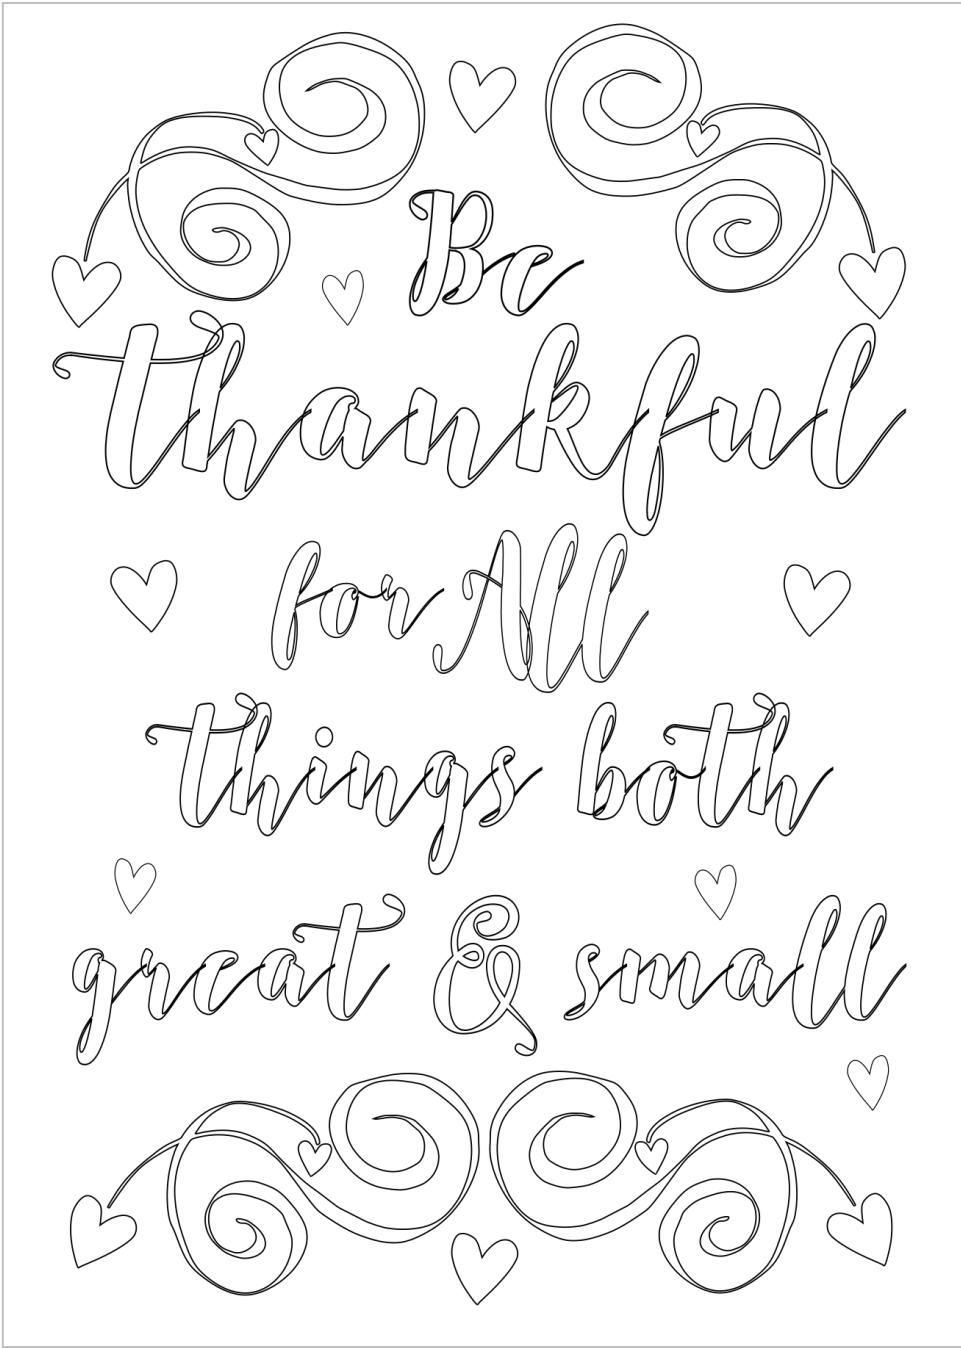 Be
thankful
for All
things both
great & small